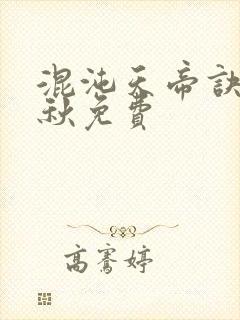 混沌天帝訣
秋免費
高騫婷